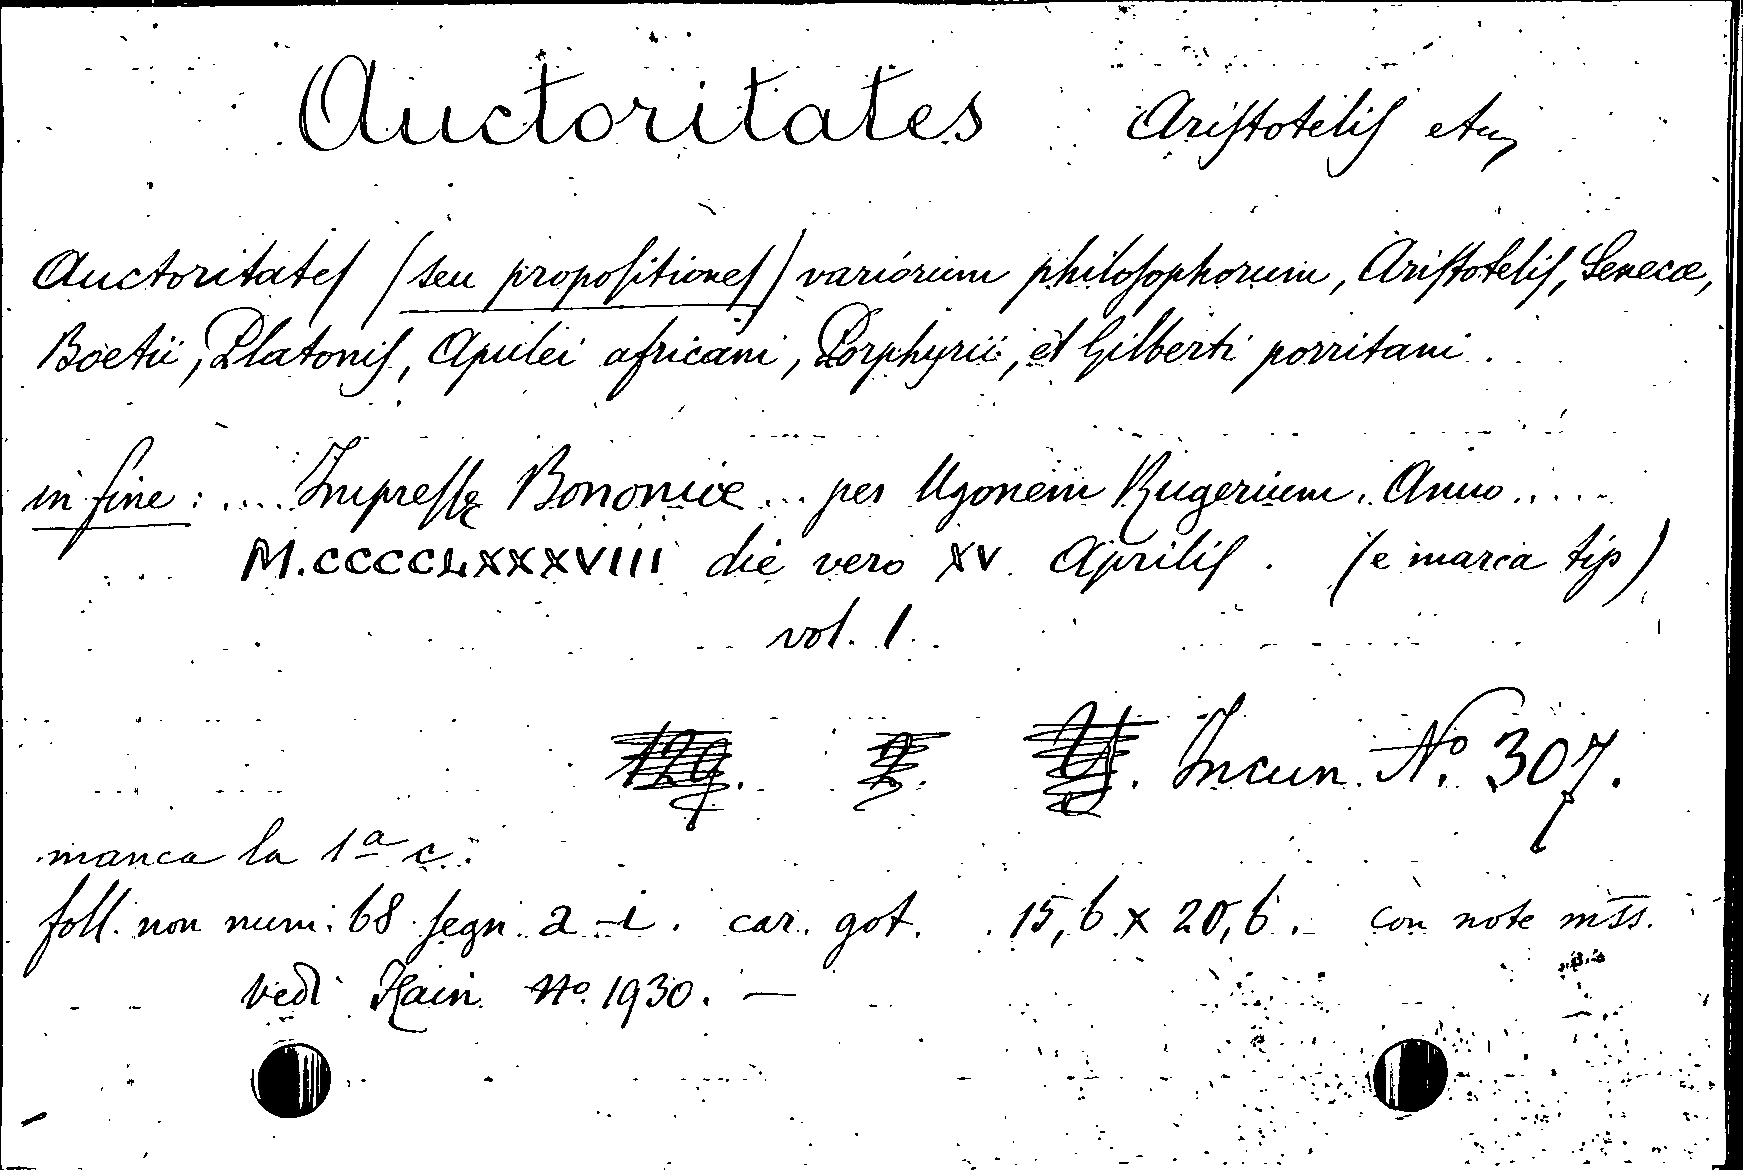 Auctoritates Aristotelis etc
Auctoritates (seu propositiones) variorum philosophorum, Aristotelis, Senecæ,
Boetii, Platonis, Apulei africani, Porphyrii, et Gilberti porritani.
in fine: .... Impressæ Bononiæ ... per Ugonem Rugerium. Anno.....
M.CCCCLXXXVIII die vero XV Aprilis. (e marca tip)
vol. 1.
Incun. No. 307.
manca la 1a c.
foll. non num. 68 segn. a-i. car. got. 15,6 x 20,6. con note mss.
vedi Hain No. 1930. —